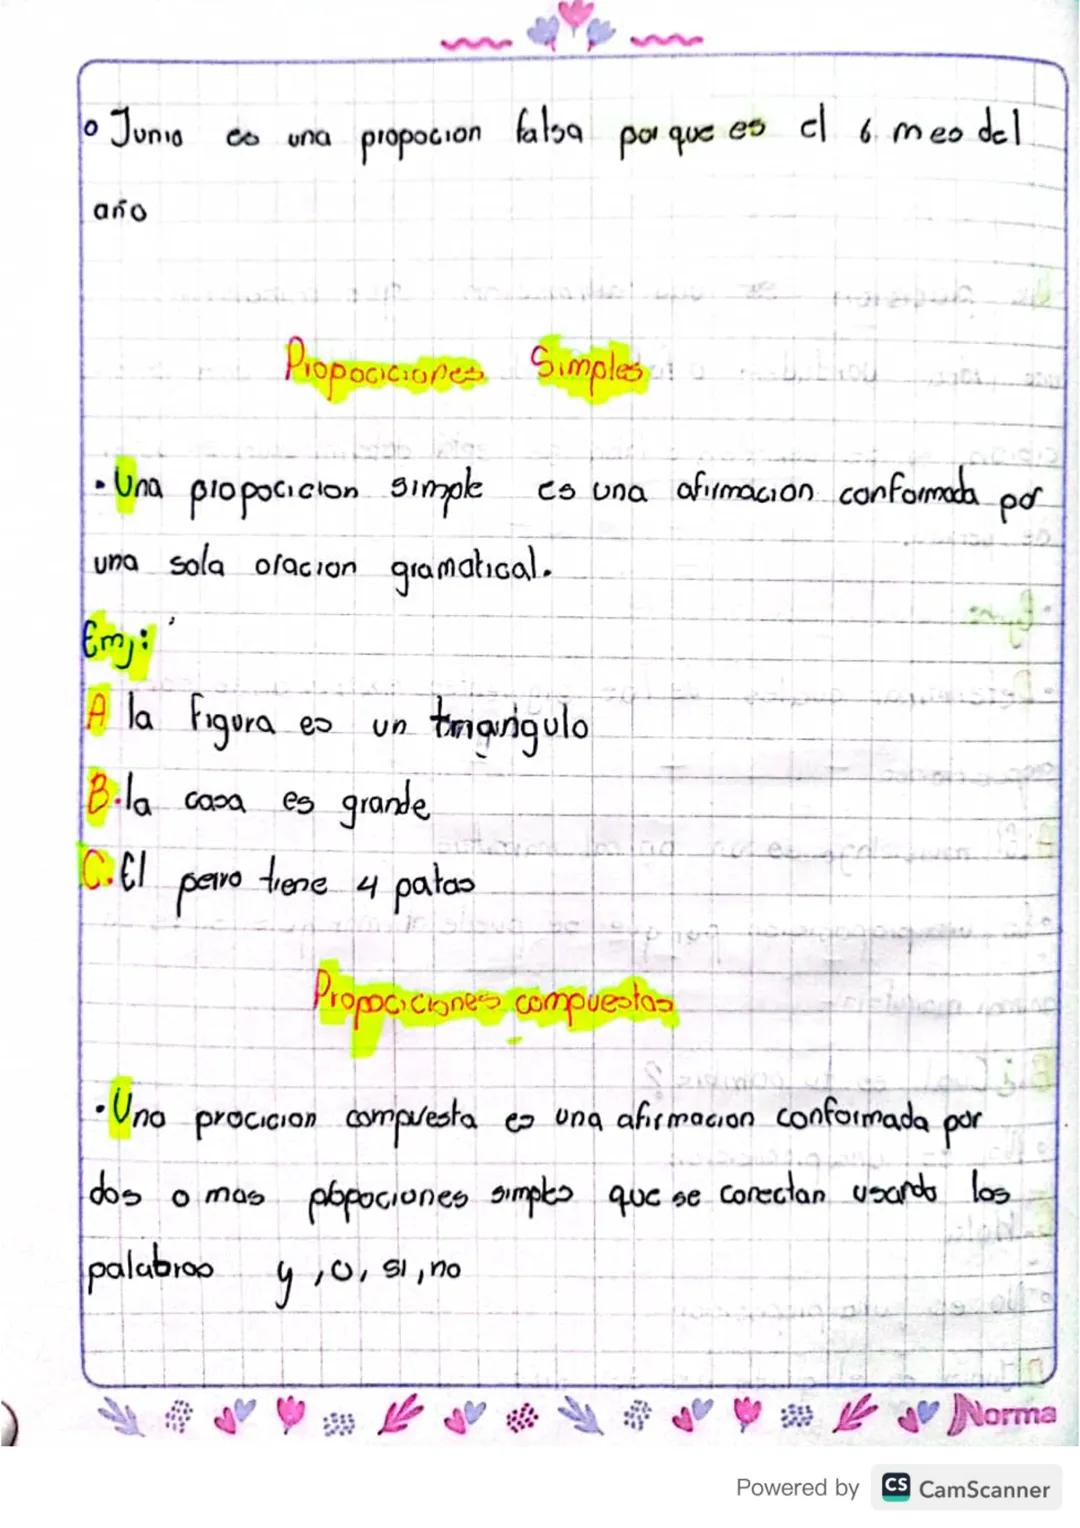 o Junio es una propocion falsa por que es el 6 mes del
año
Propociciones Simples
• Una propocicion simple es una afirmacion conformada por
una sola oracion gramatical.
Emj:
A la figura es un
B. la casa es grande
C. El perro tiene 4 patas
Propociciones compuestas
• Una procicion compuesta es una afirmacion conformada por
dos o mas simples que se conectan usando las
palabras y, o, si, no
Norma
Powered by CS CamScanner